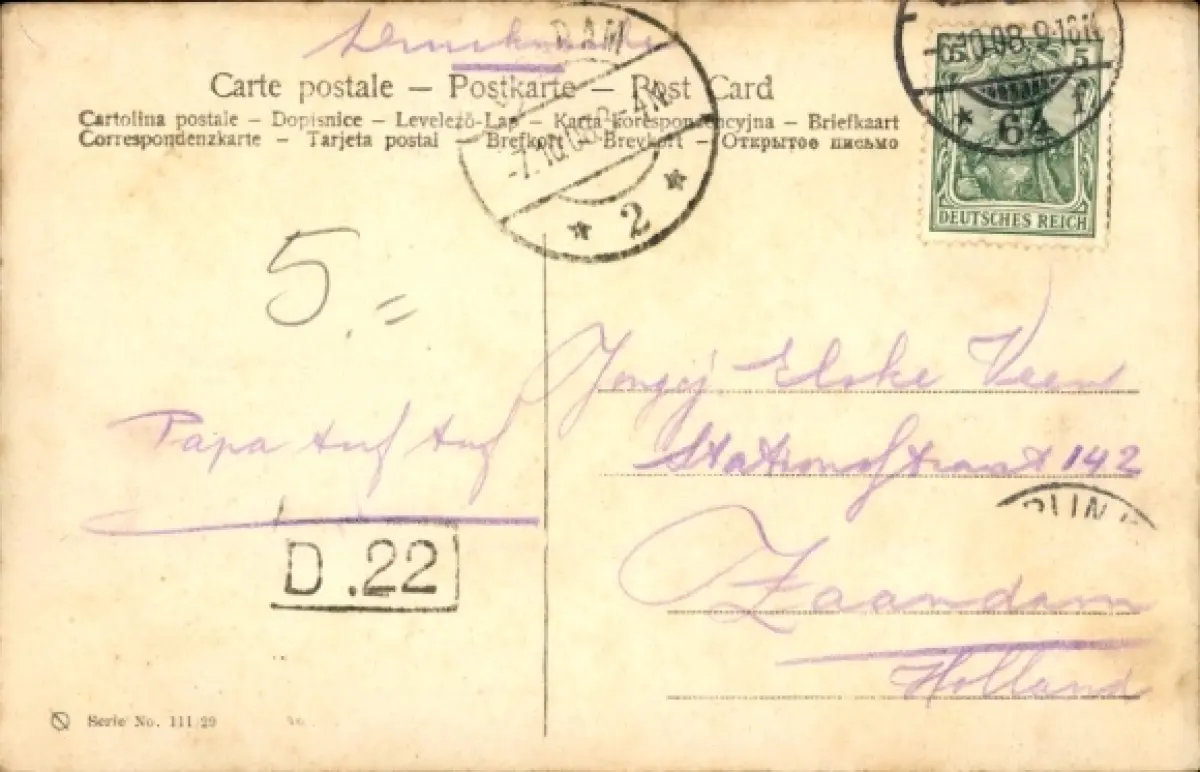 Drucksache
Carte postale – Postkarte – Post Card
Cartolina postale – Dopisnice – Levelező-Lap – Karta korespondencyjna – Briefkaart
Correspondenzkarte – Tarjeta postal – Brefkort – Brevkort – Открытое письмо
DAM
-7.10.08-4N
2
-6.10.08.9-10N
64
f
5
5
DEUTSCHES REICH
5.=
Papa
D.22
Elske Veen
Stationstraat 142
Zaandam
Holland
Serie No. 111/29